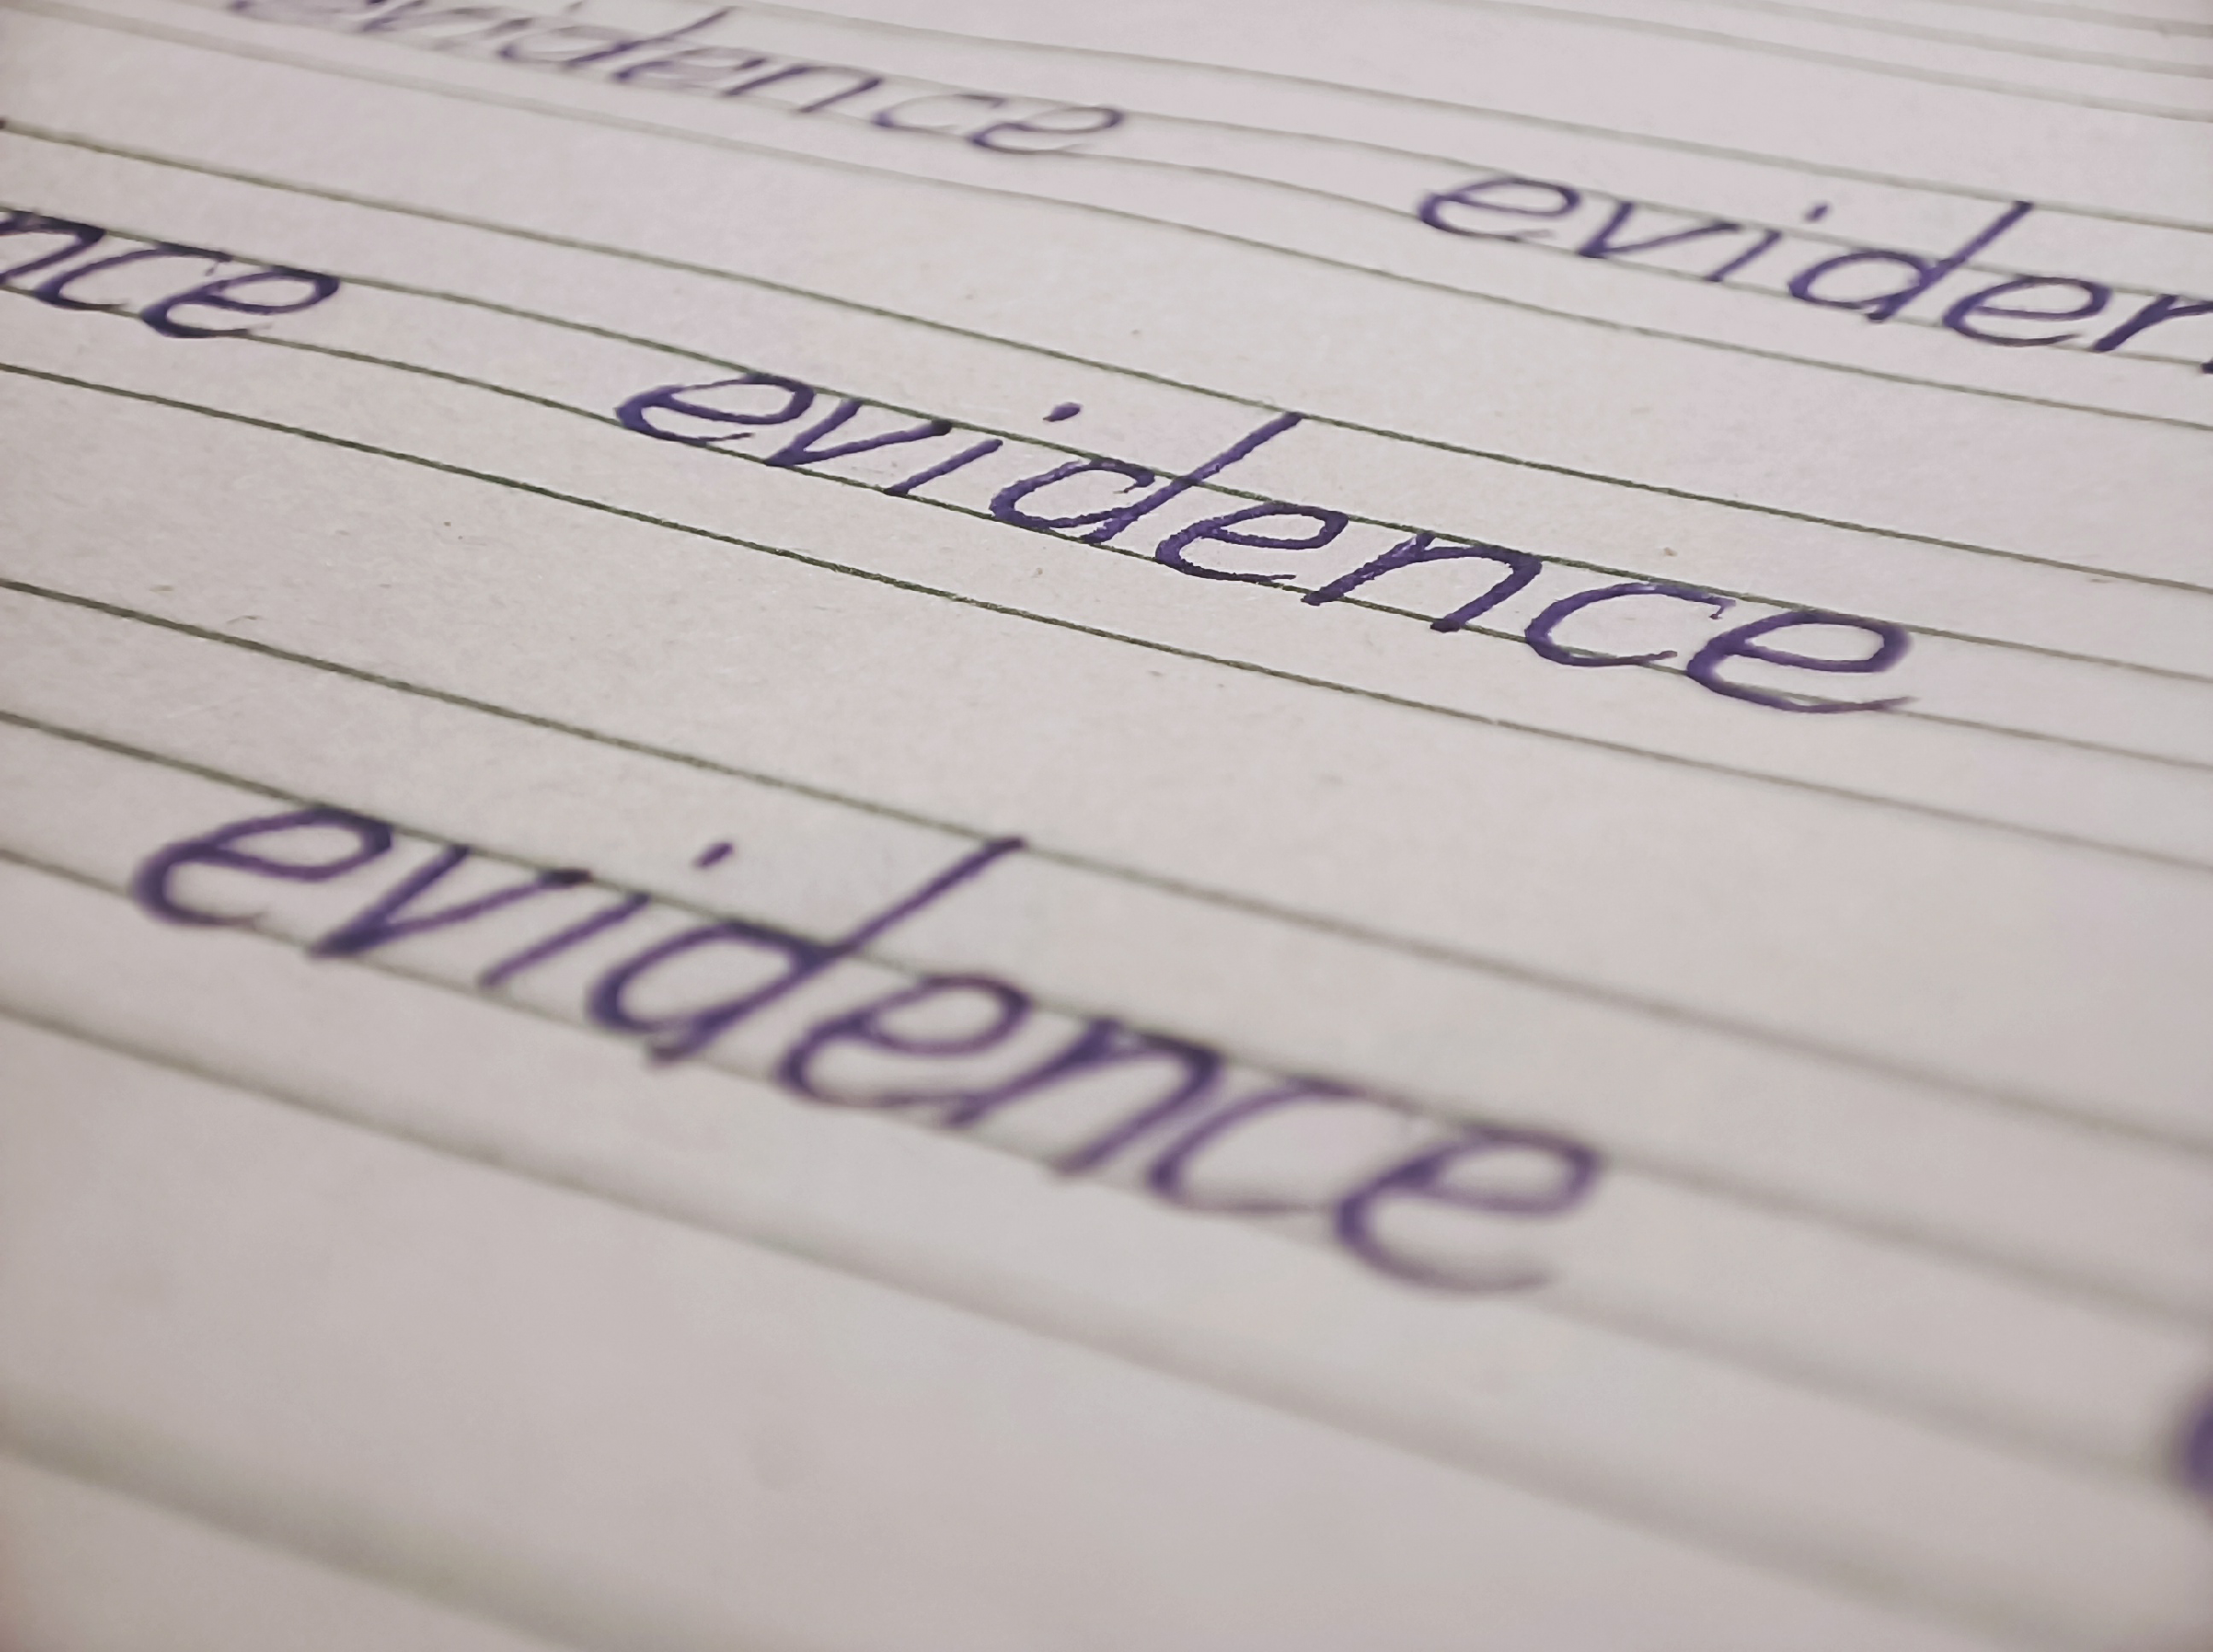 evidence eviden
nce evidence
evidence